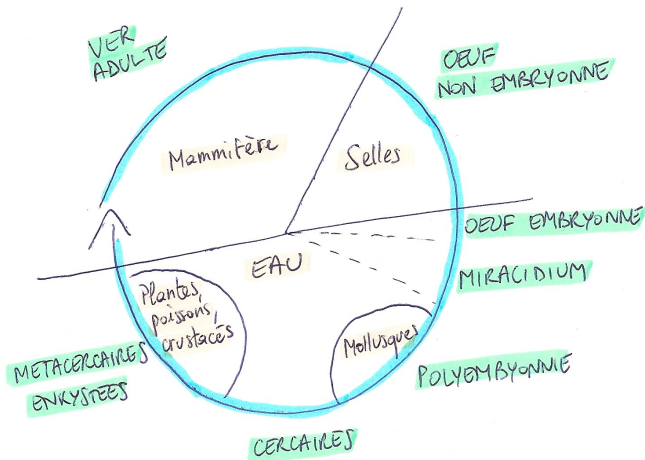 VER
ADULTE
OEUF
NON EMBRYONNE
Mammifère
Selles
OEUF EMBRYONNE
EAU
MIRACIDIUM
Plantes,
poissons,
crustacés
Mollusques
METACERCAIRES
ENKYSTEES
POLYEMBYONNIE
CERCAIRES